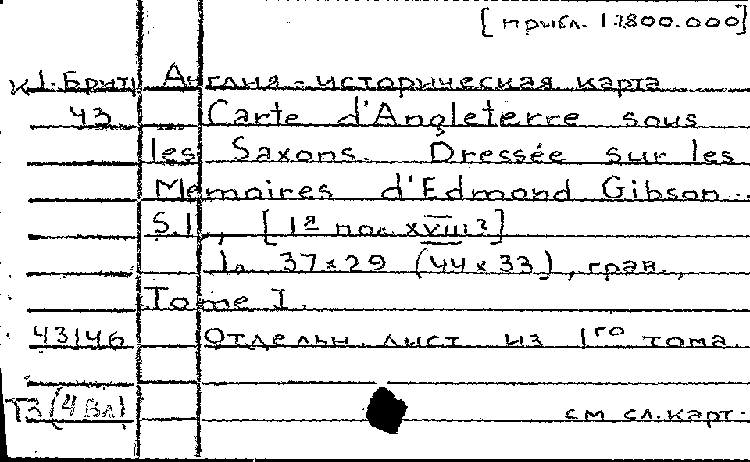 [прибл. 1:3800.000]
К1.Брит Англия - историческая карта
43 Carte d'Angleterre sous
les Saxons. Dressée sur les
Memoires d'Edmond Gibson...
S.l., [1ª пол. XVIII?]
1л. 37x29 (44x33), грав.,
Tome I.
43146 Отдельн. лист из 1го тома
T3(4 Вл) см сл.карт.